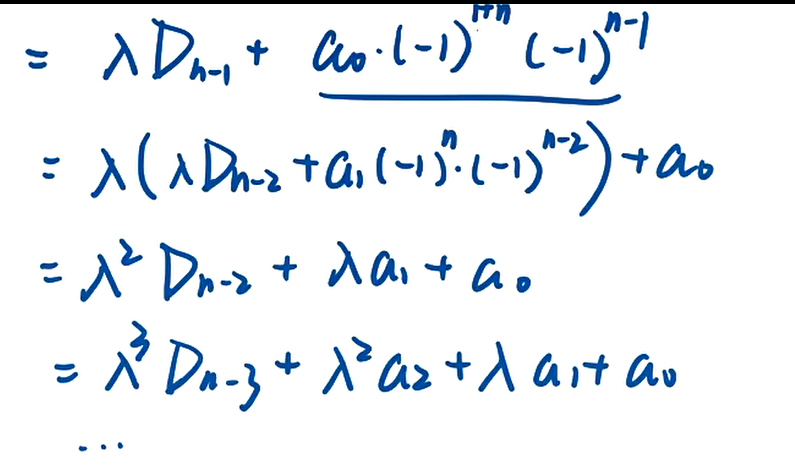 = λD_{n-1} + a_0·(-1)^{1+n} (-1)^{n-1}
= λ(λD_{n-2} + a_1(-1)^n·(-1)^{n-2}) + a_0
= λ^2 D_{n-2} + λa_1 + a_0
= λ^3 D_{n-3} + λ^2 a_2 + λ a_1 + a_0
...